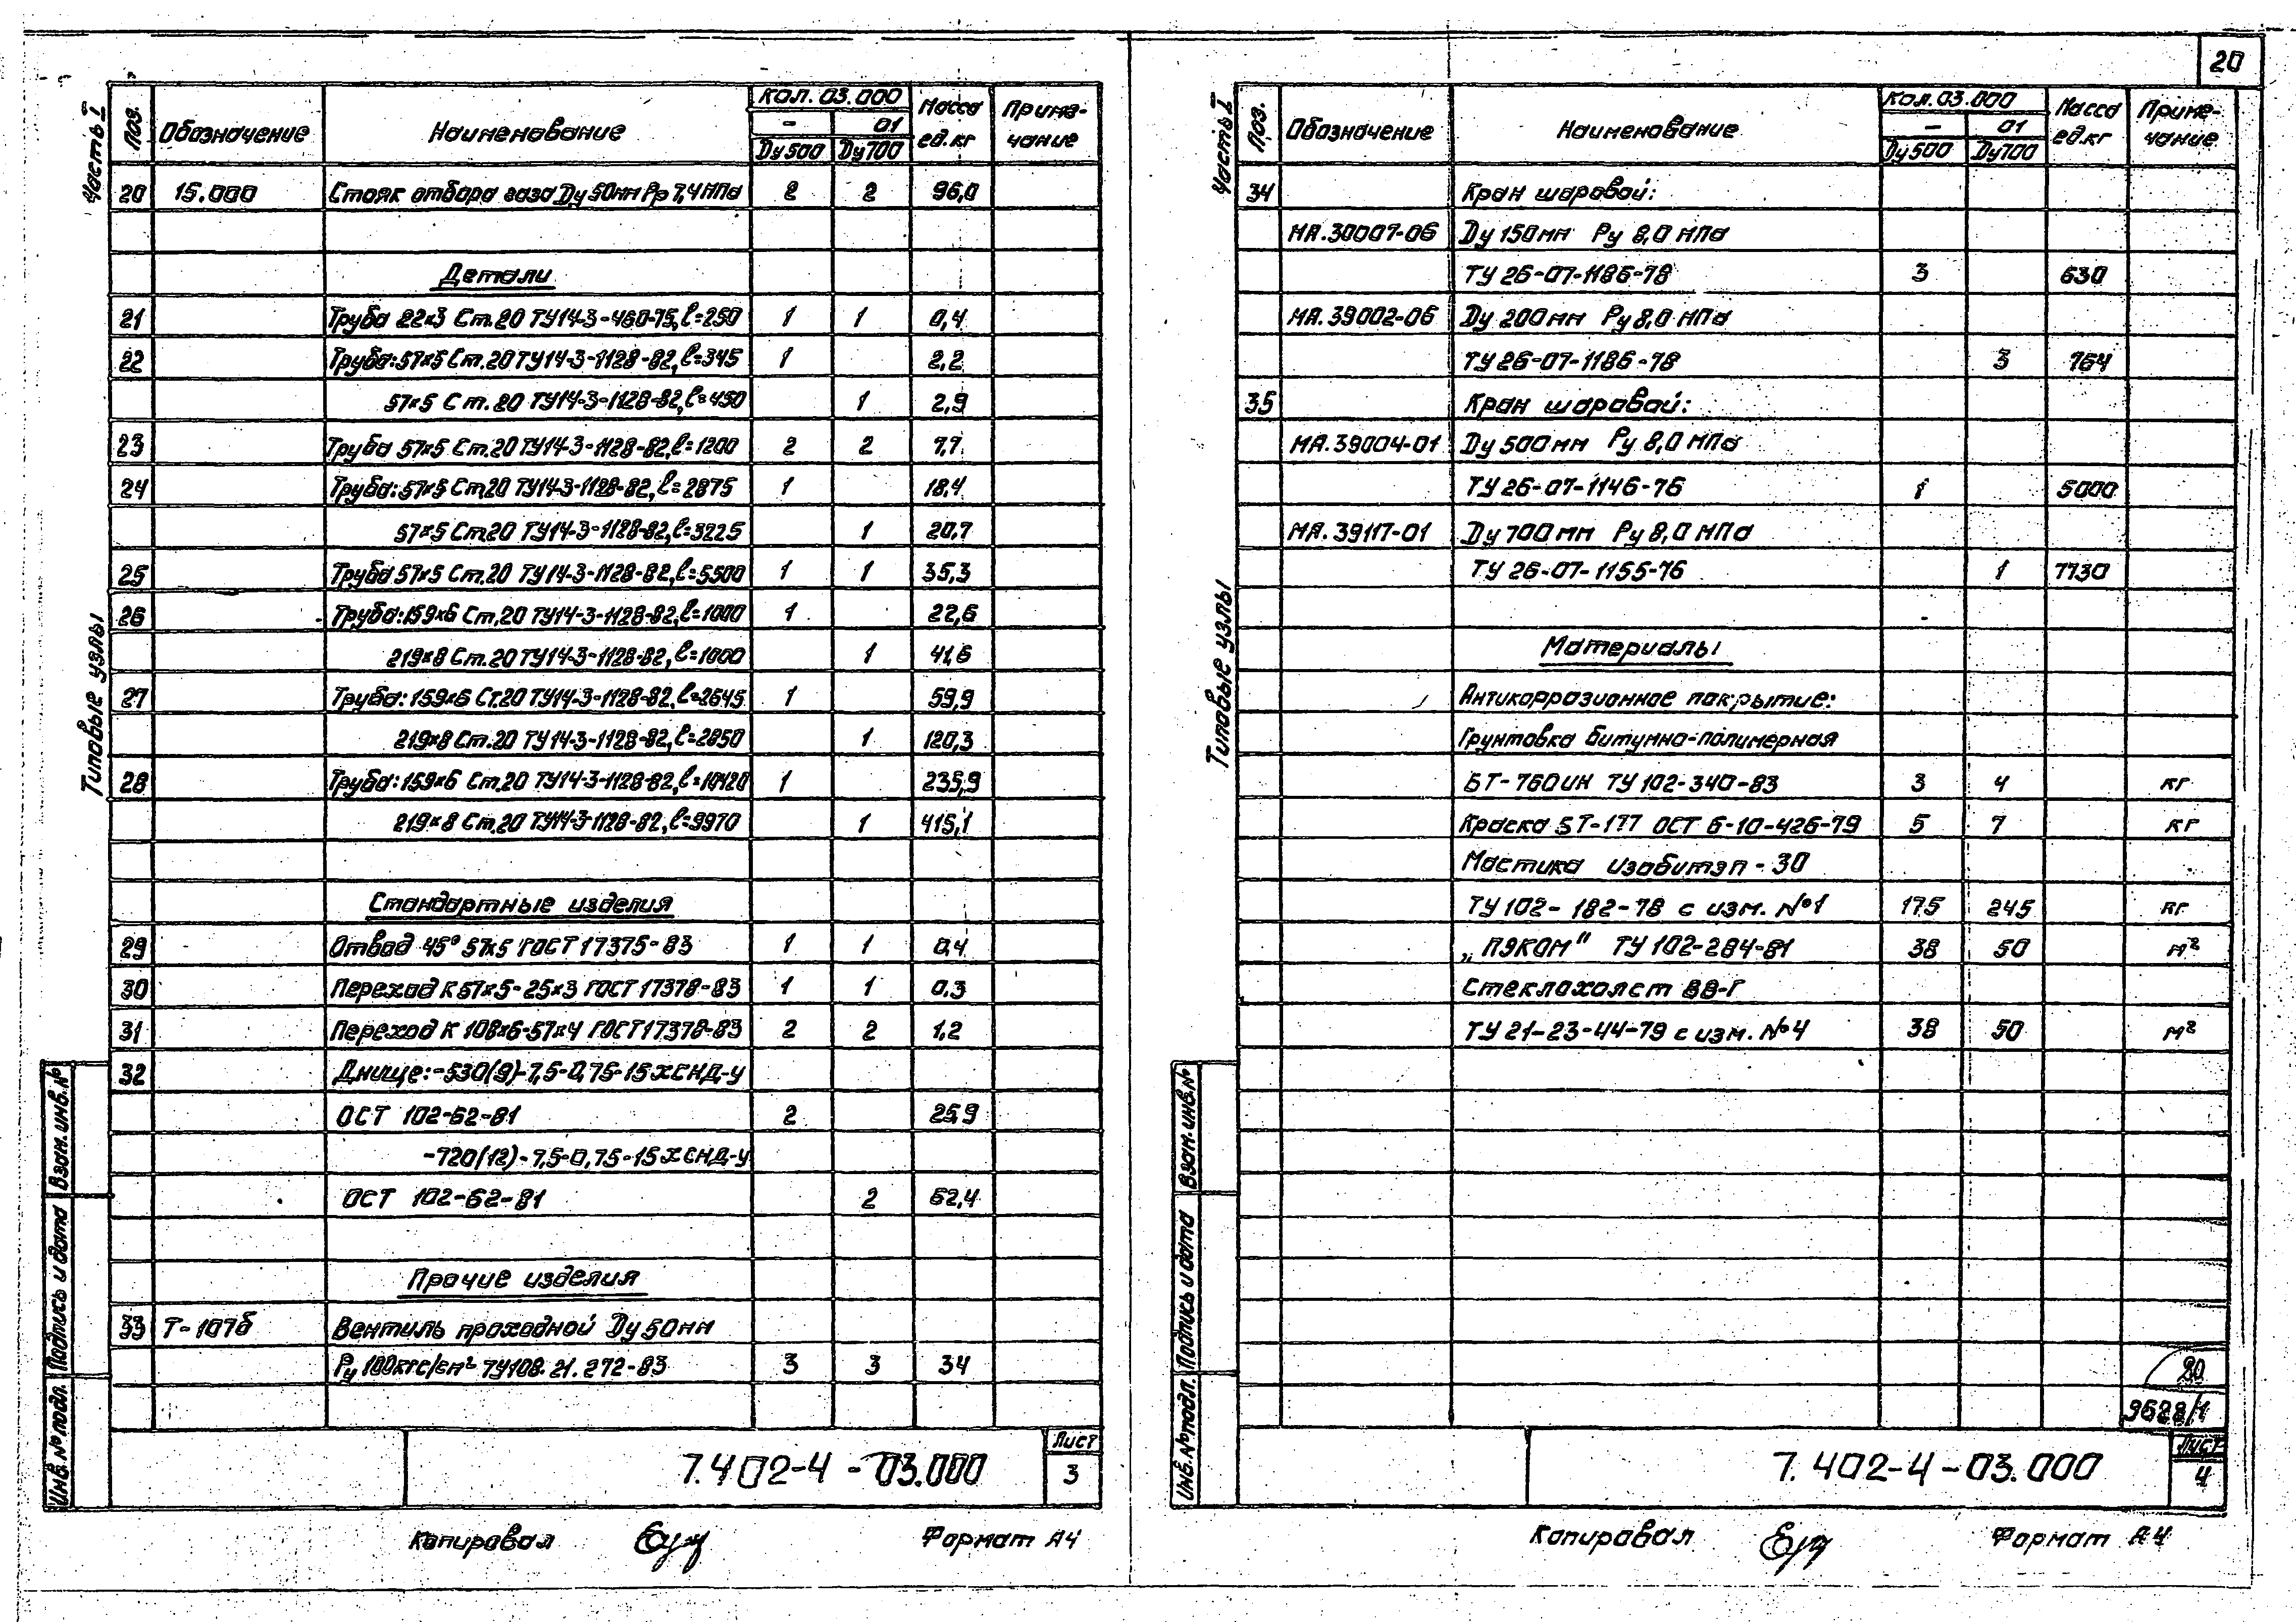 20
Часть I
Типовые узлы
Поз. Обозначение Наименование Кол. 03.000 Масса ед.кг Приме-чание
- 01
Ду500 Ду700
20 15.000 Стояк отбора газа Ду 50мм Рр 7,4 МПа 2 2 96,0
Детали
21 Труба 22х3 Ст.20 ТУ14-3-460-75, l=250 1 1 0,4
22 Труба: 57х5 Ст.20 ТУ14-3-1128-82, l=345 1 2,2
57х5 Ст.20 ТУ14-3-1128-82, l=450 1 2,9
23 Труба 57х5 Ст.20 ТУ14-3-1128-82, l=1200 2 2 7,7
24 Труба: 57х5 Ст.20 ТУ14-3-1128-82, l=2875 1 18,4
57х5 Ст.20 ТУ14-3-1128-82, l=3225 1 20,7
25 Труба 57х5 Ст.20 ТУ14-3-1128-82, l=5500 1 1 35,3
26 Труба: 159х6 Ст.20 ТУ14-3-1128-82, l=1000 1 22,6
219х8 Ст.20 ТУ14-3-1128-82, l=1000 1 41,6
27 Труба: 159х6 Ст.20 ТУ14-3-1128-82, l=2645 1 59,9
219х8 Ст.20 ТУ14-3-1128-82, l=2850 1 120,3
28 Труба: 159х6 Ст.20 ТУ14-3-1128-82, l=10420 1 235,9
219х8 Ст.20 ТУ14-3-1128-82, l=9970 1 415,1
Стандартные изделия
29 Отвод 45° 57х5 ГОСТ 17375-83 1 1 0,4
30 Переход К 57х5-25х3 ГОСТ 17378-83 1 1 0.3
31 Переход К 108х6-57х4 ГОСТ 17378-83 2 2 1,2
32 Днище: -530(9)-7,5-0,75-15ХСНД-У
ОСТ 102-62-81 2 25,9
-720(12)-7,5-0,75-15ХСНД-У
ОСТ 102-62-81 2 62,4
Прочие изделия
33 Т-107б Вентиль проходной Ду 50мм
Ру 100кгс/см² ТУ108.21.272-83 3 3 34
Взам. инв.№
Подпись и дата
Инв.№ подл.
7.402-4-03.000 Лист 3
Копировал Формат А4
Часть I
Типовые узлы
Поз. Обозначение Наименование Кол. 03.000 Масса ед.кг Приме-чание
- 01
Ду500 Ду700
34 Кран шаровой:
МА.30007-06 Ду 150мм Ру 8,0 МПа
ТУ 26-07-1186-78 3 630
МА.39002-06 Ду 200мм Ру 8,0 МПа
ТУ 26-07-1186-78 3 764
35 Кран шаровой:
МА.39004-01 Ду 500мм Ру 8,0 МПа
ТУ 26-07-1146-76 1 5000
МА.39117-01 Ду 700мм Ру 8,0 МПа
ТУ 26-07-1155-76 1 7730
Материалы
Антикоррозионное покрытие:
Грунтовка битумно-полимерная
БТ-760ИН ТУ 102-340-83 3 4 кг
Краска БТ-177 ОСТ 6-10-426-79 5 7 кг
Мастика изобитэп-30
ТУ 102-182-78 с изм. №1 175 245 кг
„ПЭКОМ" ТУ 102-284-81 38 50 м²
Стеклохолст ВВ-Г
ТУ 21-23-44-79 с изм. №4 38 50 м²
20
9628/1
Взам. инв.№
Подпись и дата
Инв.№ подл.
7.402-4-03.000 Лист 4
Копировал Формат А4